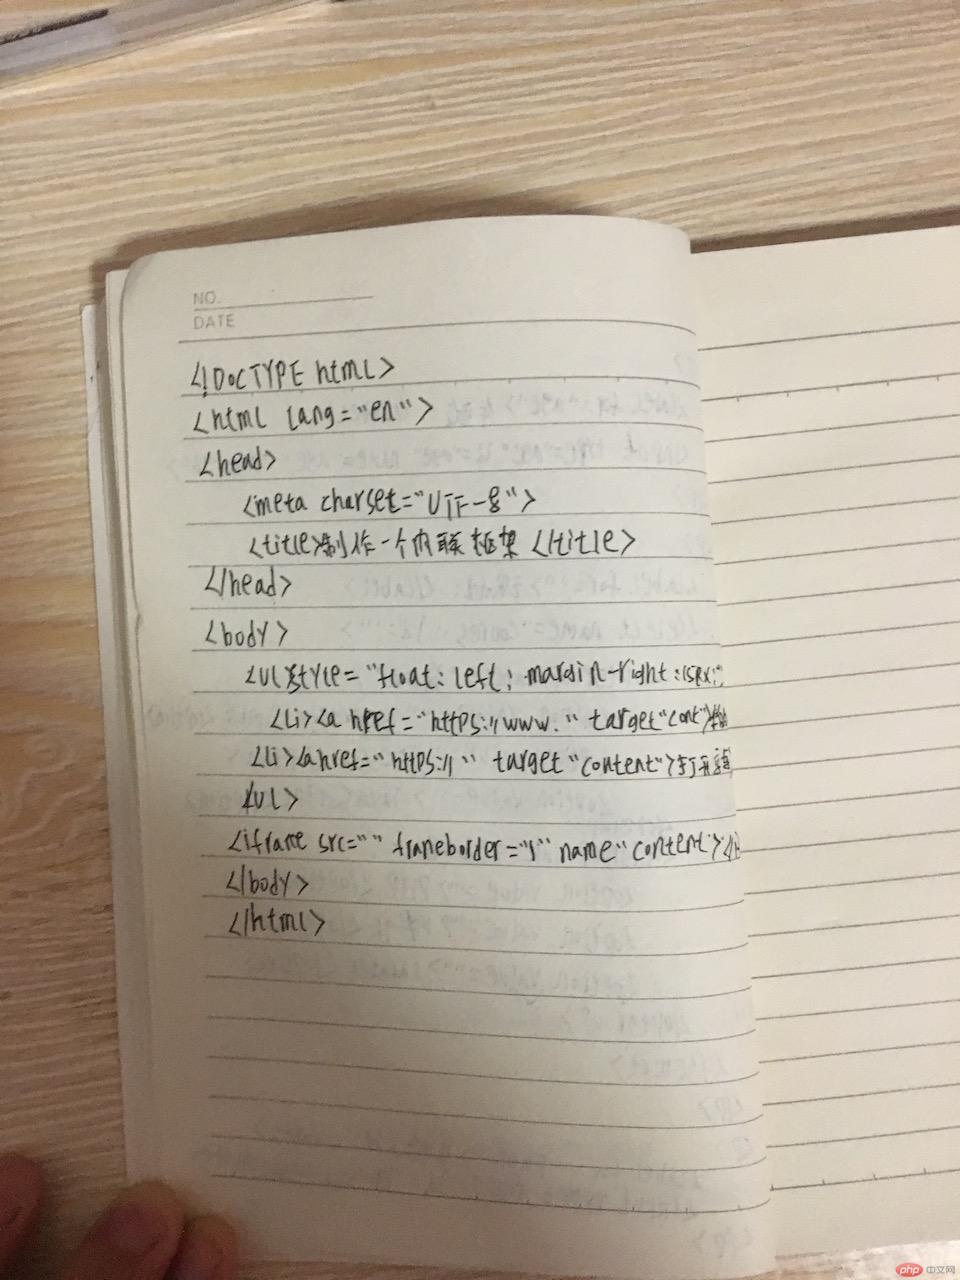 NO.
DATE
<!DOCTYPE html>
<html lang="en">
<head>
<meta charset="UTF-8">
<title>制作一个内联框架</title>
</head>
<body>
<ul style="float: left; margin-right: 15px;"
<li><a href="https://www." target"cont">
<li><a href="https://" target"content">打开
<ul>
<iframe src="" frameborder="1" name"content"></i
</body>
</html>
php 中文网